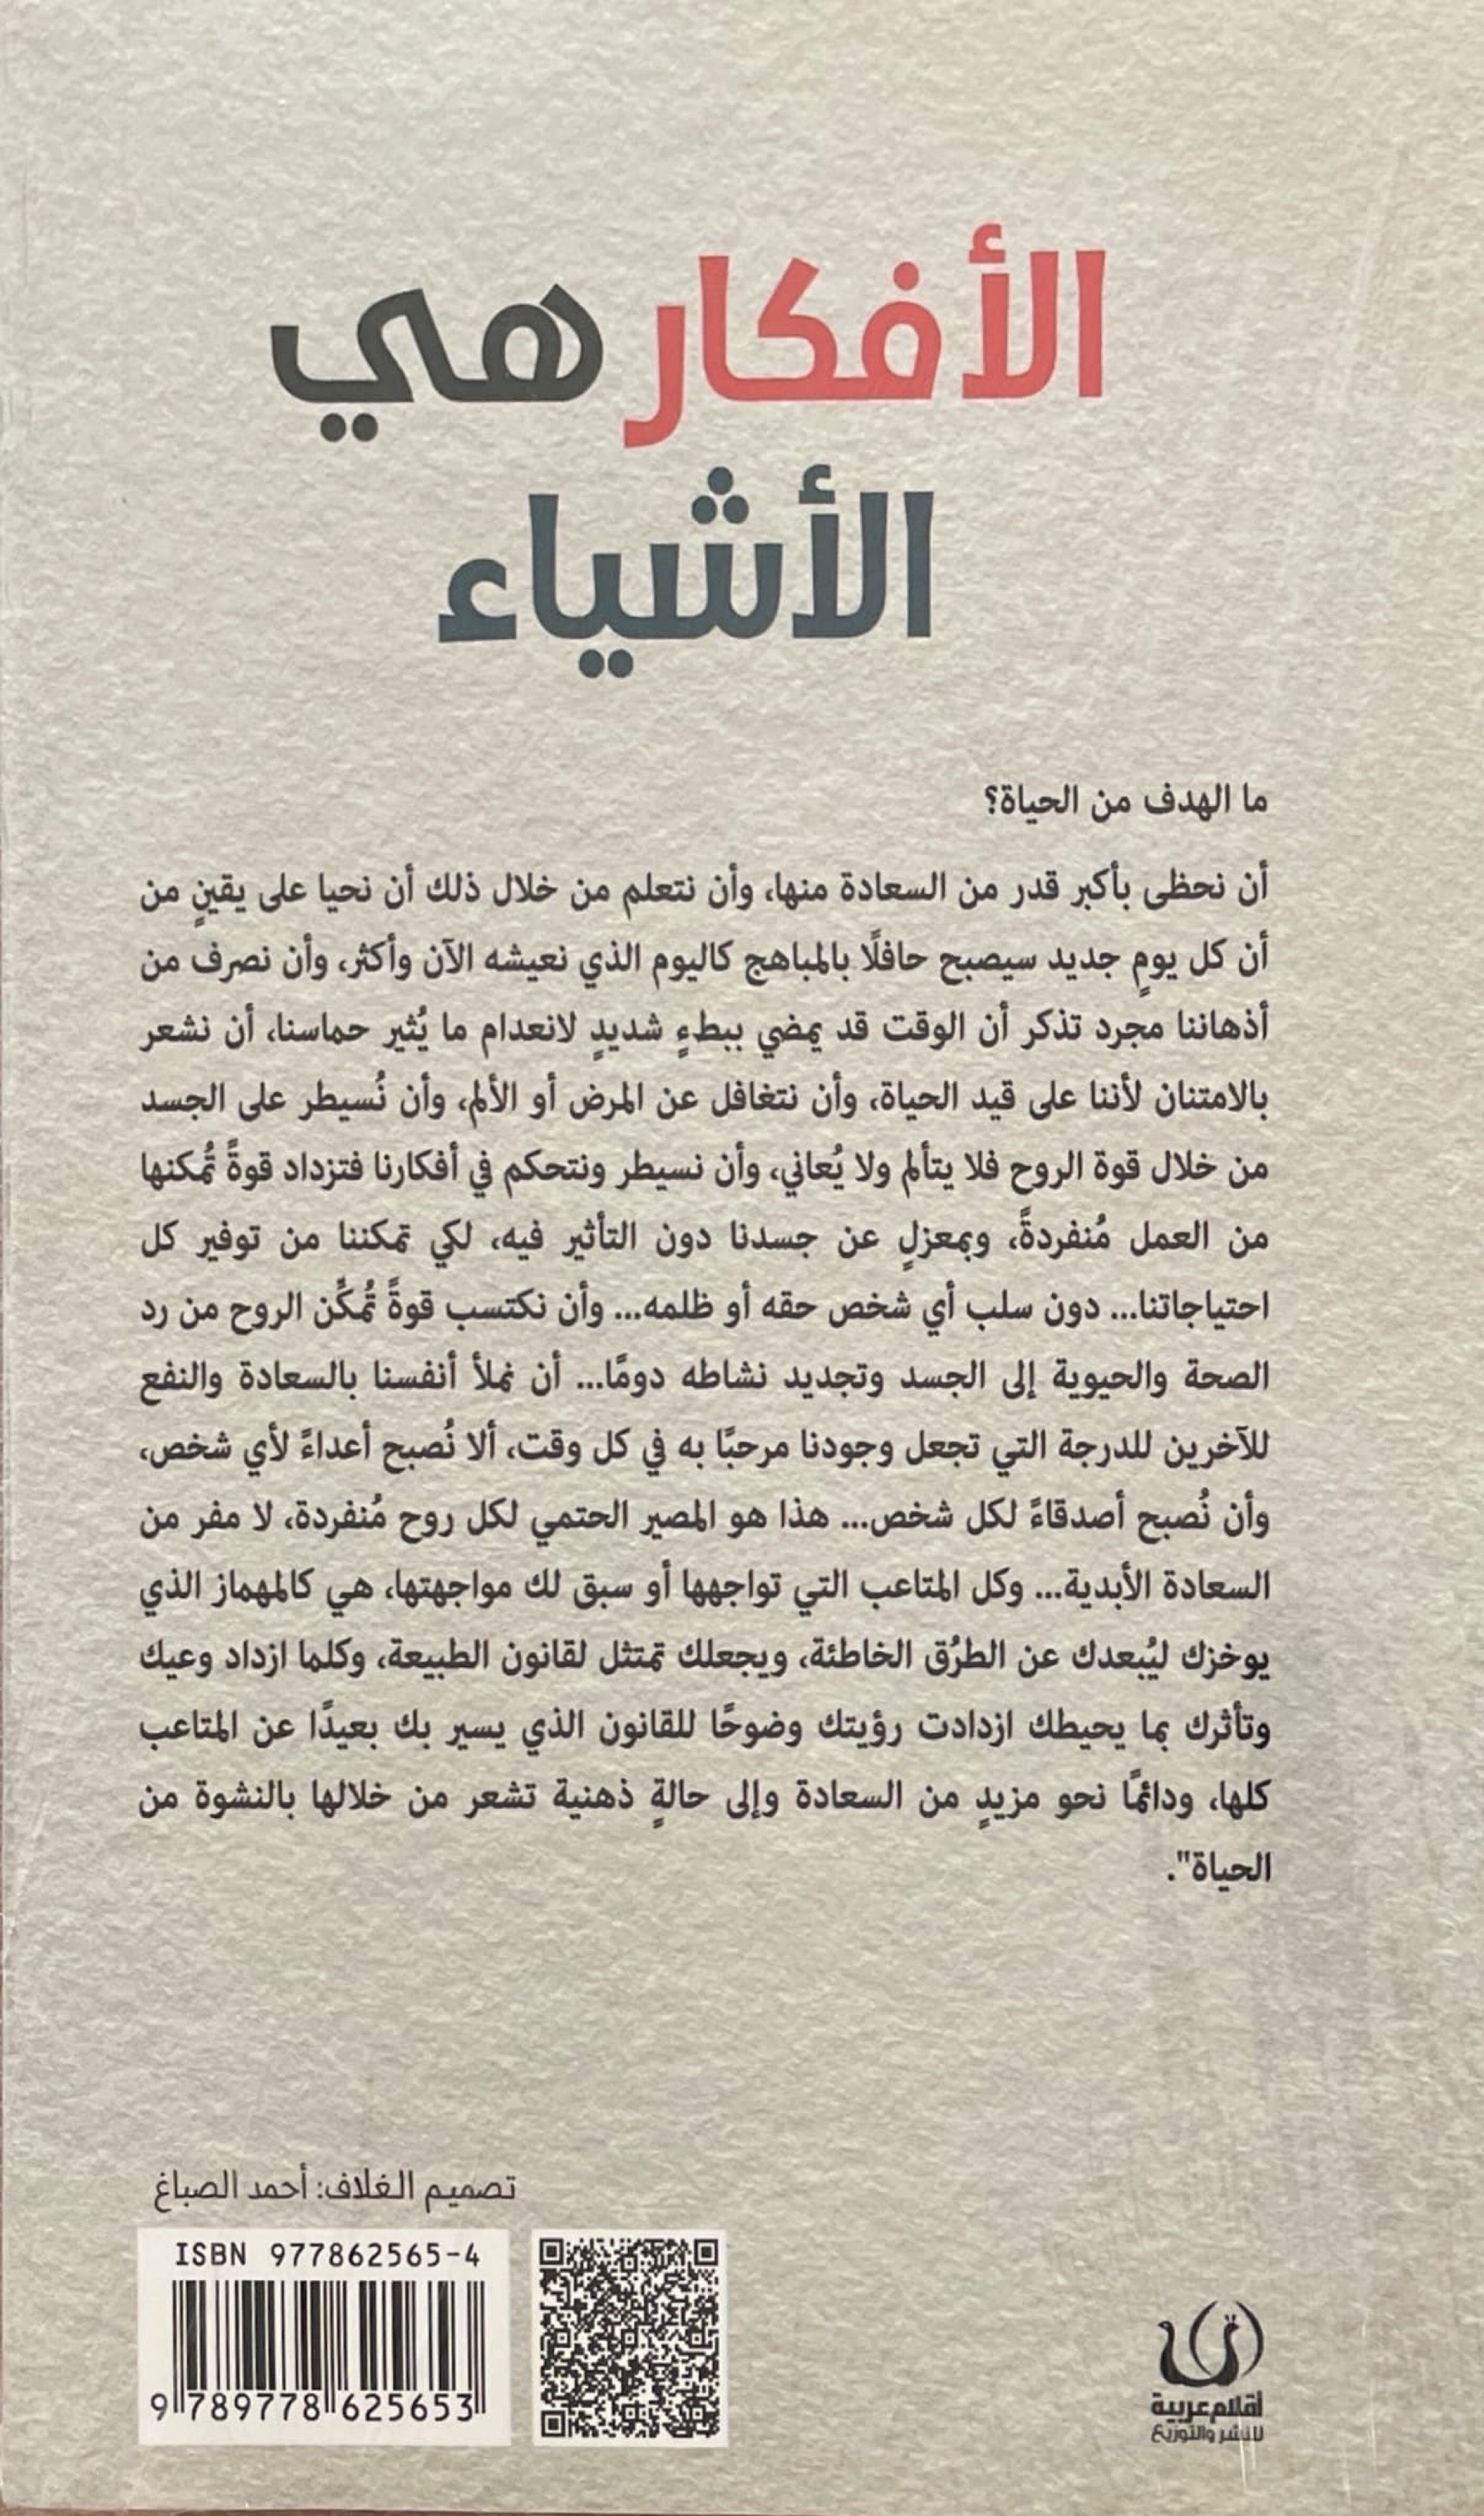 الأفكار هي
الأشياء
ما الهدف من الحياة؟
أن نحظى بأكبر قدر من السعادة منها، وأن نتعلم من خلال ذلك أن نحيا على يقينٍ من
أن كل يومٍ جديد سيصبح حافلًا بالمباهج كاليوم الذي نعيشه الآن وأكثر، وأن نصرف من
أذهاننا مجرد تذكر أن الوقت قد يمضي ببطءٍ شديدٍ لانعدام ما يُثير حماسنا، أن نشعر
بالامتنان لأننا على قيد الحياة، وأن نتغافل عن المرض أو الألم، وأن نُسيطر على الجسد
من خلال قوة الروح فلا يتألم ولا يُعاني، وأن نسيطر ونتحكم في أفكارنا فتزداد قوةً تُمكنها
من العمل مُنفردةً، وبمعزلٍ عن جسدنا دون التأثير فيه، لكي تمكننا من توفير كل
احتياجاتنا... دون سلب أي شخص حقه أو ظلمه... وأن نكتسب قوةً تُمكِّن الروح من رد
الصحة والحيوية إلى الجسد وتجديد نشاطه دومًا... أن نملأ أنفسنا بالسعادة والنفع
للآخرين للدرجة التي تجعل وجودنا مرحبًا به في كل وقت، ألا نُصبح أعداءً لأي شخص،
وأن نُصبح أصدقاءً لكل شخص... هذا هو المصير الحتمي لكل روح مُنفردة، لا مفر من
السعادة الأبدية... وكل المتاعب التي تواجهها أو سبق لك مواجهتها، هي كالمهماز الذي
يوخزك ليُبعدك عن الطرُق الخاطئة، ويجعلك تمتثل لقانون الطبيعة، وكلما ازداد وعيك
وتأثرك بما يحيطك ازدادت رؤيتك وضوحًا للقانون الذي يسير بك بعيدًا عن المتاعب
كلها، ودائمًا نحو مزيدٍ من السعادة وإلى حالةٍ ذهنية تشعر من خلالها بالنشوة من
الحياة".
تصميم الغلاف: أحمد الصباغ
ISBN 977862565-4
9 789778 625653
أقلام عربية
للنشر والتوزيع